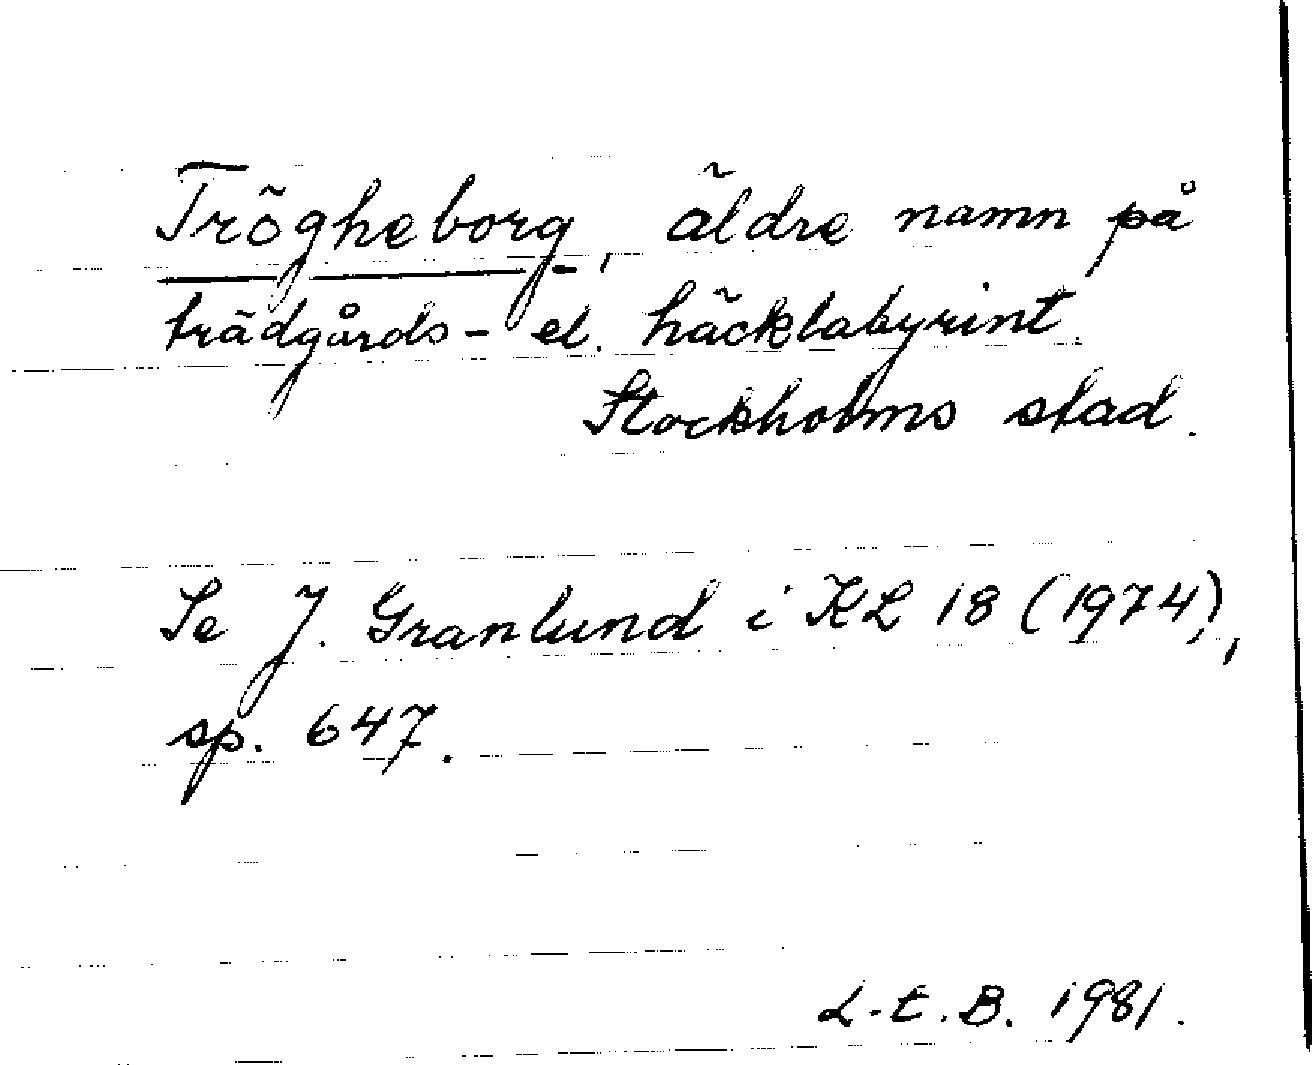 Trögheborg, äldre namn på
trädgårds- el. häcklabyrint.
Stockholms stad.
Se J. Granlund i KL 18 (1974),
sp. 647.
L-E.B. 1981.